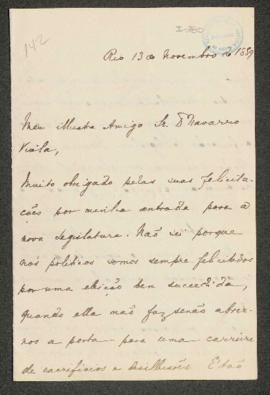 142
Rio 13 de Novembro de 1889
Meu illustre Amigo Sr. Dr Navarro
Viola,
Muito obrigado pelas suas felicita-
ções por minha entrada para a
nova legislatura. Não sei porque
nós politicos somos sempre felicitados
por uma eleição bem succedida,
quando ella não faz senão abrir-
nos a porta para uma carreira
de sacrificios e desillusões. Estas